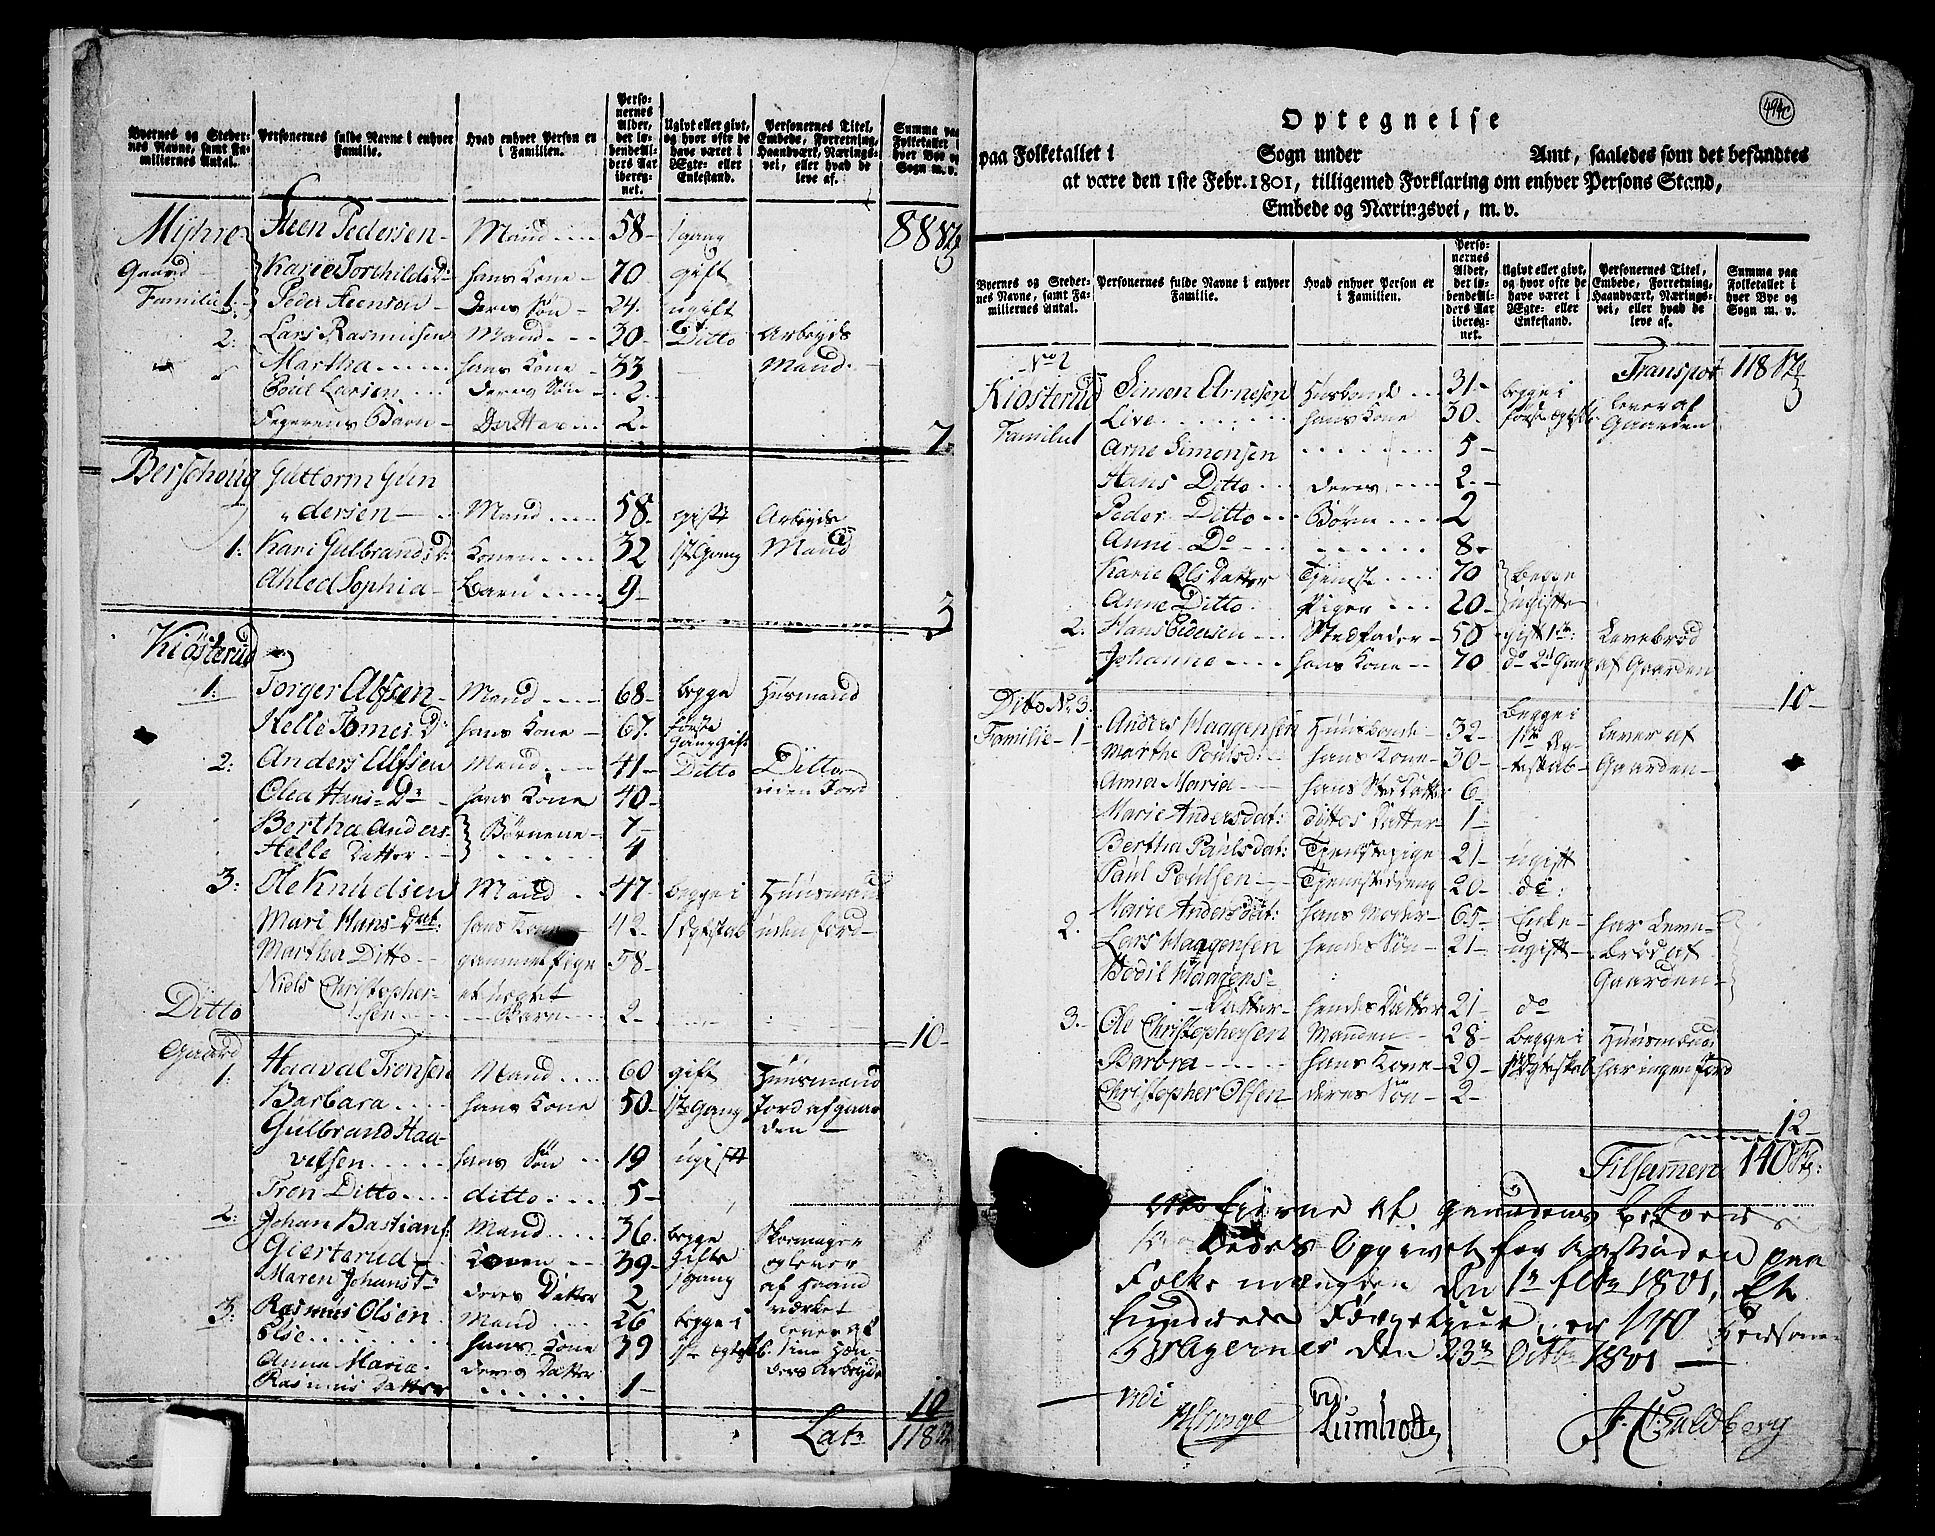 Byernes og Steder-
nes Navne, samt Fa-
miliernes Antal.
Personernes fulde Navne i enhver
Familie.
Hvad enhver Person er
i Familien.
Perso-
nernes
Alder,
det lø-
bende Al-
ders Aar
ibereg-
net.
Ugivt eller givt,
og hvor ofte de
have været i
Ægte- eller
Enkestand.
Personernes Titel,
Embede, Forretning,
Haandværk, Nærings-
vei, eller hvad de
leve af.
Summa paa
Folketallet i
hver Bye og
Sogn m. v.
Mÿhre Steen Pedersen Mand 58 1 gang 88
Gaard Karie Torchilds Dr hans Kone 70 gift
Familie 1: Peder Steenson Deres Søn 24 ugift
2: Lars Rasmusen Mand 30 Ditto Arbeyds
Martha hans Kone 33 Mand
Poul Larsen deres Søn 2
Fegerens Barn Ditto 2
7
Berschoug Guttorm Gun
dersen Mand 58 gift Arbeyds
1: Kari Gulbrands Dr Konen 32 1ste Gang Mand
Ahled Sophia Barn 9
3
Kiøsterud
1: Torger Alfsen Mand 68 begge Huusmand
Helle Tomes Dr hans Kone 67 første
Gang gift
2: Anders Alfsen Mand 41 Ditto Ditto
Olea Hans Dr hans Kone 40 uden Jord
Bertha Anders Børnene 7
Helle Datter 4
3: Ole Knudsen Mand 47 begge i Huusmand
Mari Hans Dat: hans Kone 42 1 Egteskab uden jord
Martha Ditto gammel Pige 58
Niels Christopher
sen Barn 2
Ditto 10
Gaard
1: Haaval Tronsen Mand 60 gift Huusmand
Barbara hans Kone 50 1ste Gang Jord af gaar
den
Gulbrand Haa-
velsen hans Søn 19 ugift
Tron Ditto ditto 5
2: Johan Bastians: Mand 36 begge Skomager
Gierterud Konen 39 gifte og lever
Maren Johans Dr deres Datter 2 1 gang af Haand
3: Rasmus Olsen Mand 26 begge i værket
Else hans Kone 39 1ste Egtesk. lever af
Anna Maria deres Datter sine Hæn-
Rasmus Datter 1 ders Arbeyde
10
Lat: 118
494c
Optegnelse
paa Folketallet i Sogn under Amt, saaledes som det befandtes
at være den 1ste Febr. 1801, tilligemed Forklaring om enhver Persons Stand,
Embede og Næringsvei, m. v.
Byernes og Steder-
nes Navne, samt Fa-
miliernes Antal.
Personernes fulde Navne i enhver
Familie.
Hvad enhver Person er
i Familien.
Perso-
nernes
Alder,
det lø-
bende Al-
ders Aar
ibereg-
net.
Ugivt eller givt,
og hvor ofte de
have været i
Ægte- eller
Enkestand.
Personernes Titel,
Embede, Forretning,
Haandværk, Nærings-
vei, eller hvad de
leve af.
Summa paa
Folketallet i
hver Bye og
Sogn m. v.
No 2 Transport 118
Kiøsterud Simon Arnesen Husbonde 31 begge i lever af
Live hans Kone 30 første Egtesk. Gaarden
Familie 1 Arne Simonsen 5
Hans Ditto deres 2
Peder Ditto Børn 2
Anne Do 8
Karie Ols Datter Tjeneste 70 begge
Anne Ditto Piger 20 ugifte
2. Hans Pedersen Stedfader 50 gift 1ste: Levebrød
Johanne hans Kone 70 do 2d Gang af Gaarden
10
Ditto No 3.
Familie 1 Anders Haagensen Huusbonde 32 begge i lever af
Marthe Poulsd: hans Kone 30 1ste Eg- Gaarden
Anna Maria hans Sted Datter 6 teskab
Marie Andersdat: dittos Datter 1
Bertha Paulsdat: Tjenstepige 21 ugift
Paul Poulsen Tjenestedreng 20 do:
2. Marie Andersdat: hans Moder 65 Enke har Leve-
Lars Haagensen hendes Søn 21 ugift brød af
Bodil Haagens- Gaarden
Datter hendes Datter 21 do
3. Ole Christophersen Manden 28 begge i Huusmand
Barbra hans Kone 29 1 Egteskab har ingen jord
Christopher Olsen deres Søn 2
12
Tilsamen 140
Eierne af Gaardens
Opgivet for Aastæden paa
Folke mængden den 1te febr 1801, Et
hundrede Fyrgetyve er 140 Personer
Bragernes den 23de Octbr 1801
vidi
Rumholtz
J. C. Guldberg